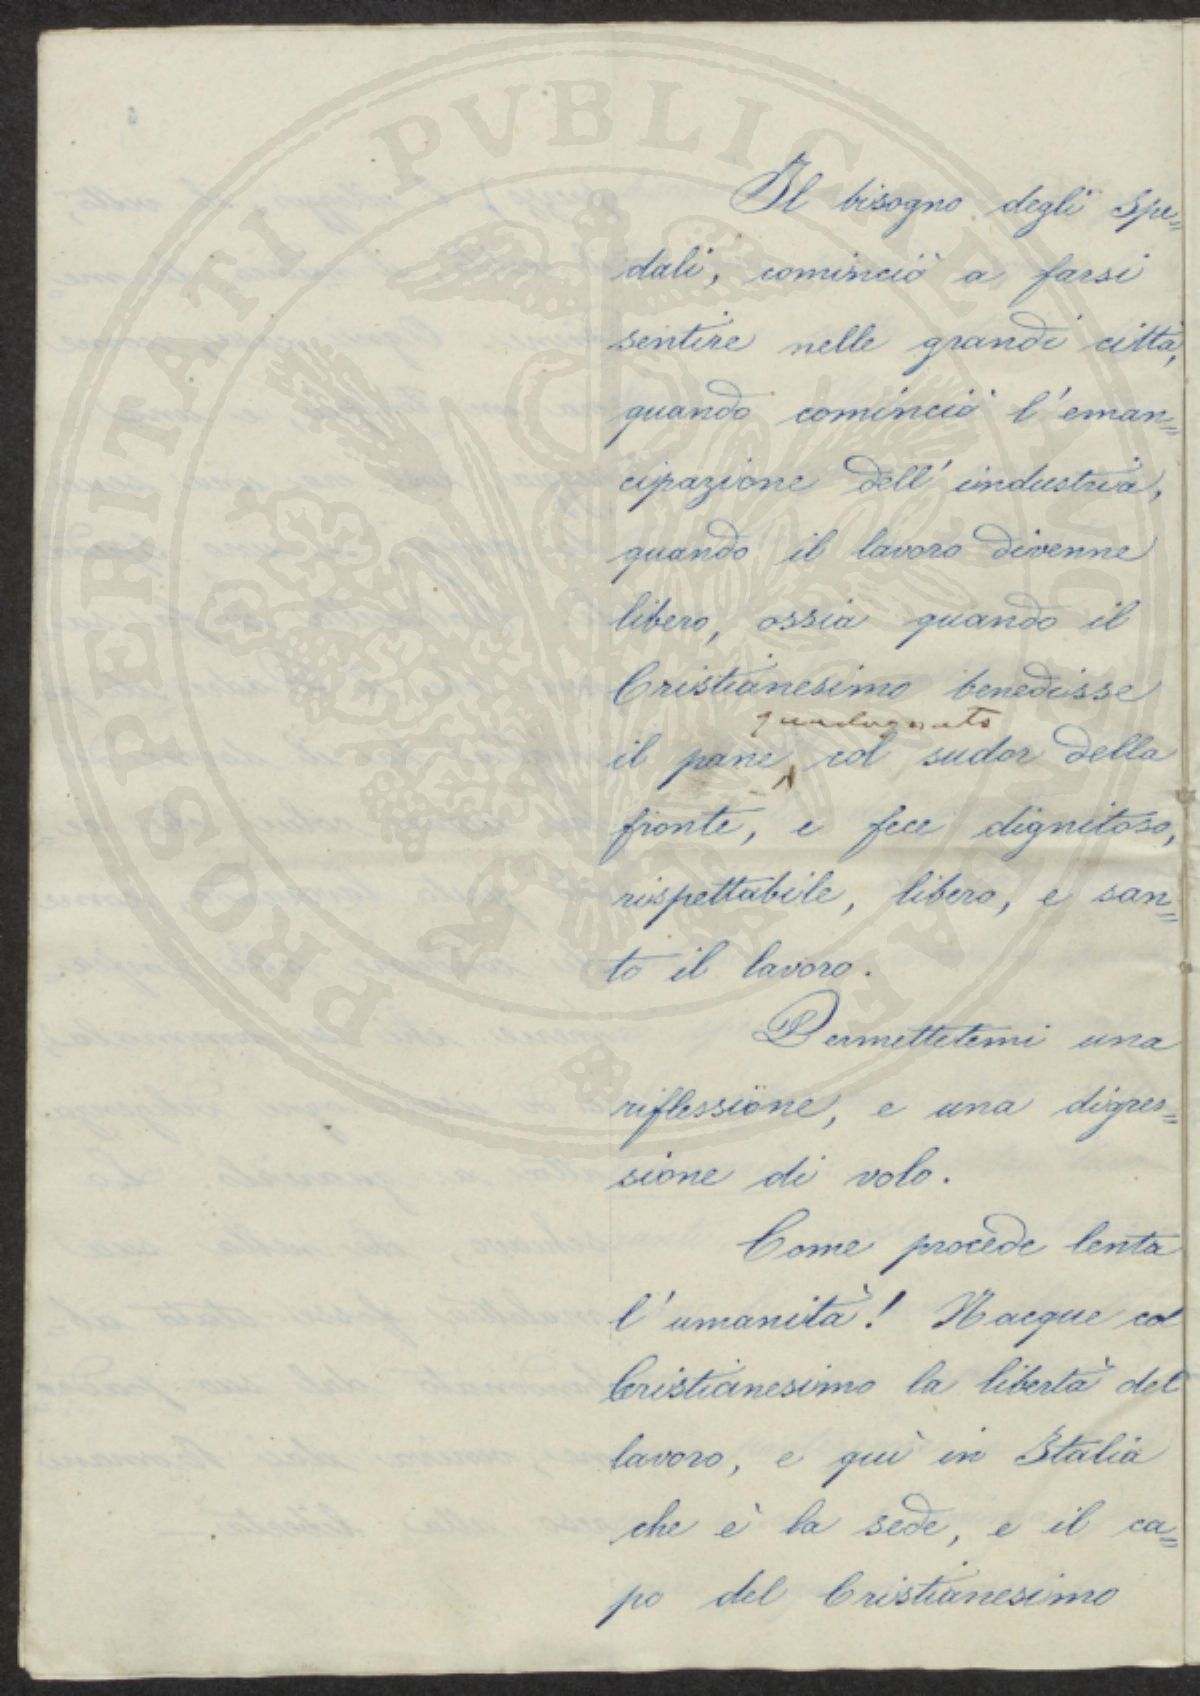 Il bisogno degli Spe=
dali, cominciò a farsi
sentire nelle grandi città,
quando cominciò l'eman=
cipazione dell'industria,
quando il lavoro divenne
libero, ossia quando il
Cristianesimo benedisse
guadagnato
il pane col sudor della
fronte, e fece dignitoso,
rispettabile, libero, e san=
to il lavoro.
Permettetemi una
riflessione, e una digres=
sione di volo.
Come procede lenta
l'umanità! Nacque col
Cristianesimo la libertà del
lavoro, e quì in Italia
che è la sede, e il ca=
po del Cristianesimo
PROSPERITATI PVBLICAE